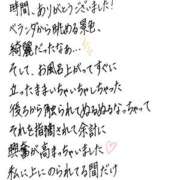 時間、ありがとうございました!
ベランダから眺める景色、
綺麗だったなぁ…
そして、お風呂上がってすぐに
立ったままいちゃいちゃしちゃった
後ろから触られてぬるぬるなっちゃって
それを指摘されて余計に
興奮が高まっちゃいました♡
私に上にのられてる間だけ